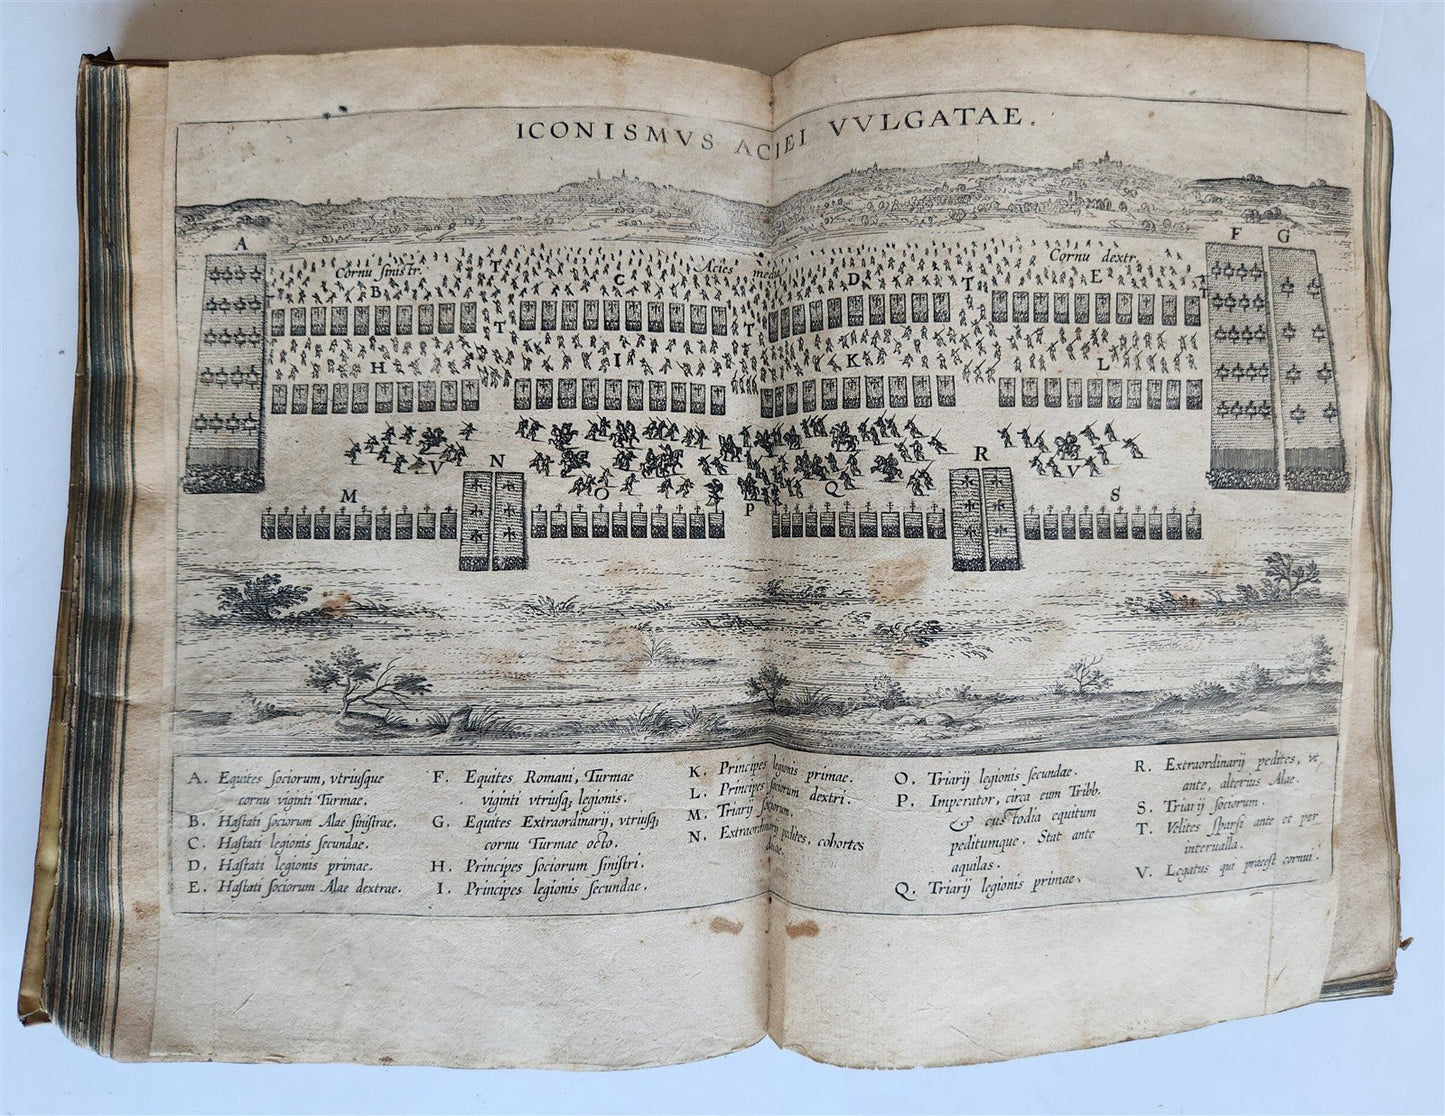 ICONISMVS ACIEI VVLGATAE.
A
F G
Cornu sinistr. T Acies media Cornu dextr.
B C D T E T
T T
H I K L
V N R V
M O P Q S
A. Equites sociorum, vtriusque
cornu viginti Turmae.
B. Hastati sociorum Alae sinistrae.
C. Hastati legionis secundae.
D. Hastati legionis primae.
E. Hastati sociorum Alae dextrae.
F. Equites Romani, Turmae
viginti vtriusq; legionis.
G. Equites Extraordinarij, vtriusq;
cornu Turmae octo.
H. Principes sociorum sinistri.
I. Principes legionis secundae.
K. Principes legionis primae.
L. Principes sociorum dextri.
M. Triarij sociorum.
N. Extraordinarij pedites, cohortes
duae.
O. Triarij legionis secundae.
P. Imperator, circa eum Tribb.
& custodia equitum
peditumque. Stat ante
aquilas.
Q. Triarij legionis primae.
R. Extraordinarij pedites, vt
ante, alterius Alae.
S. Triarij sociorum.
T. Velites sparsi ante et per
interualla.
V. Legatus qui praeest cornui.